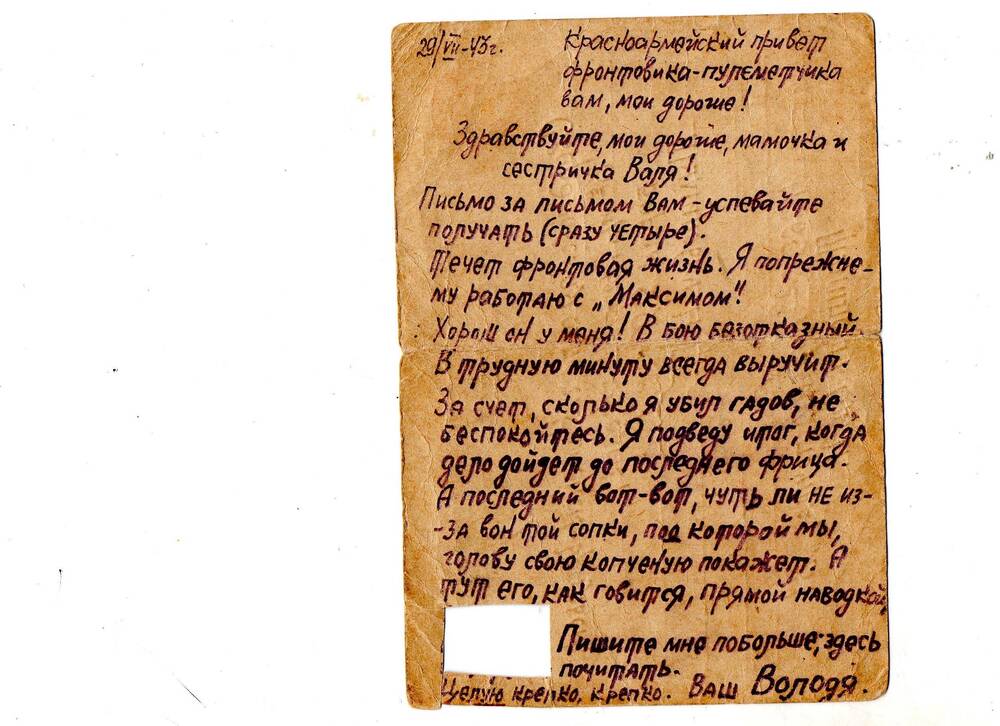 29/VII-43г.
Красноармейский привет
фронтовика-пулеметчика
вам, мои дорогие!
Здравствуйте, мои дорогие, мамочка и
сестричка Валя!
Письмо за письмом Вам-успевайте
получать (сразу четыре).
Течет фронтовая жизнь. Я попрежне-
му работаю с „Максимом"!
Хорош он у меня! В бою безотказный.
В трудную минуту всегда выручит.
За счет, сколько я убил гадов, не
беспокойтесь. Я подведу итог, когда
дело дойдет до последнего фрица.
А последний вот-вот, чуть ли не из-
-за вон той сопки, под которой мы,
голову свою копченую покажет. А
тут его, как говится, прямой наводкой,
Пишите мне побольше, здесь
почитать.
Целую крепко, крепко. Ваш Володя.